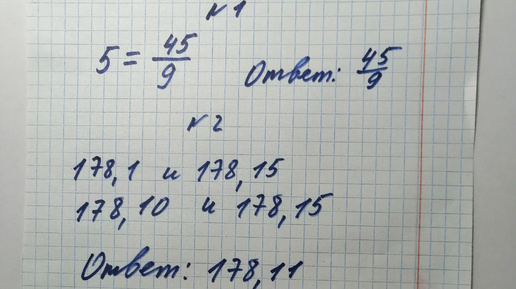 №1
5 = 45/9 Ответ: 45/9
№2
178,1 и 178,15
178,10 и 178,15
Ответ: 178,11